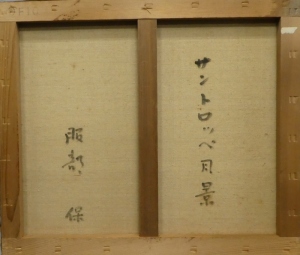 サントロッペ月景
服部 保